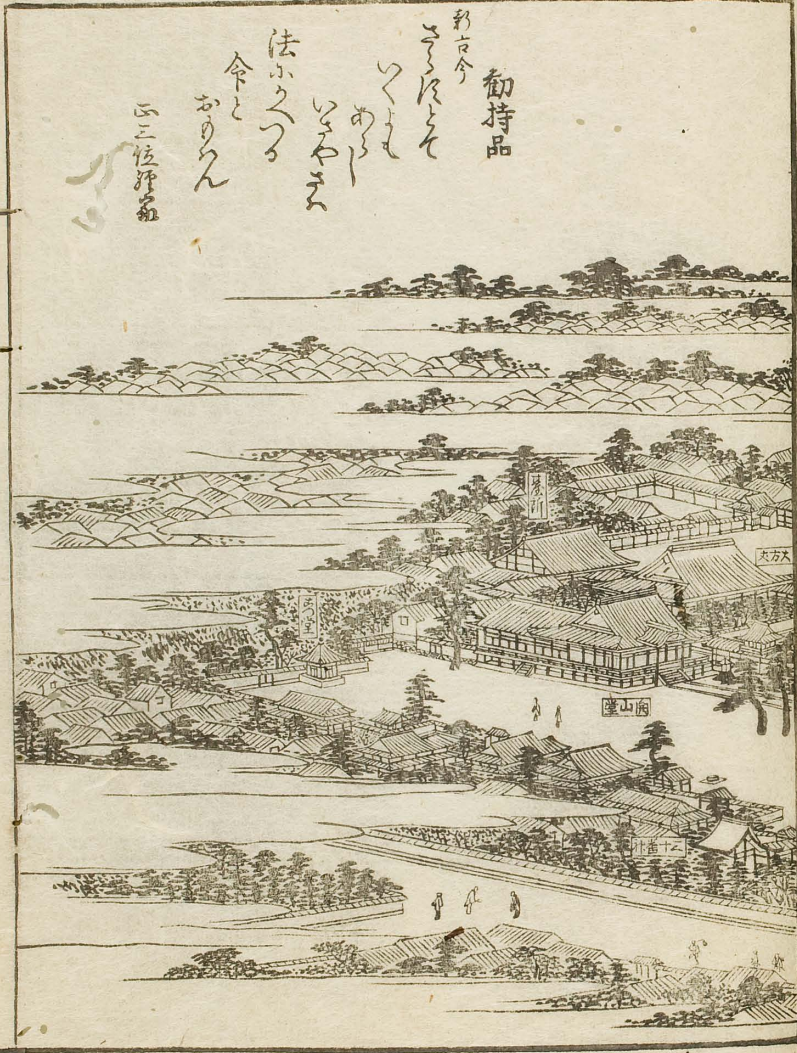 勧持品
新古今
さらすとて
いくよも
あらし
いさやさは
法にかへつる
命と
おもはん
正三位経家
大方丈
開山堂
三十番神